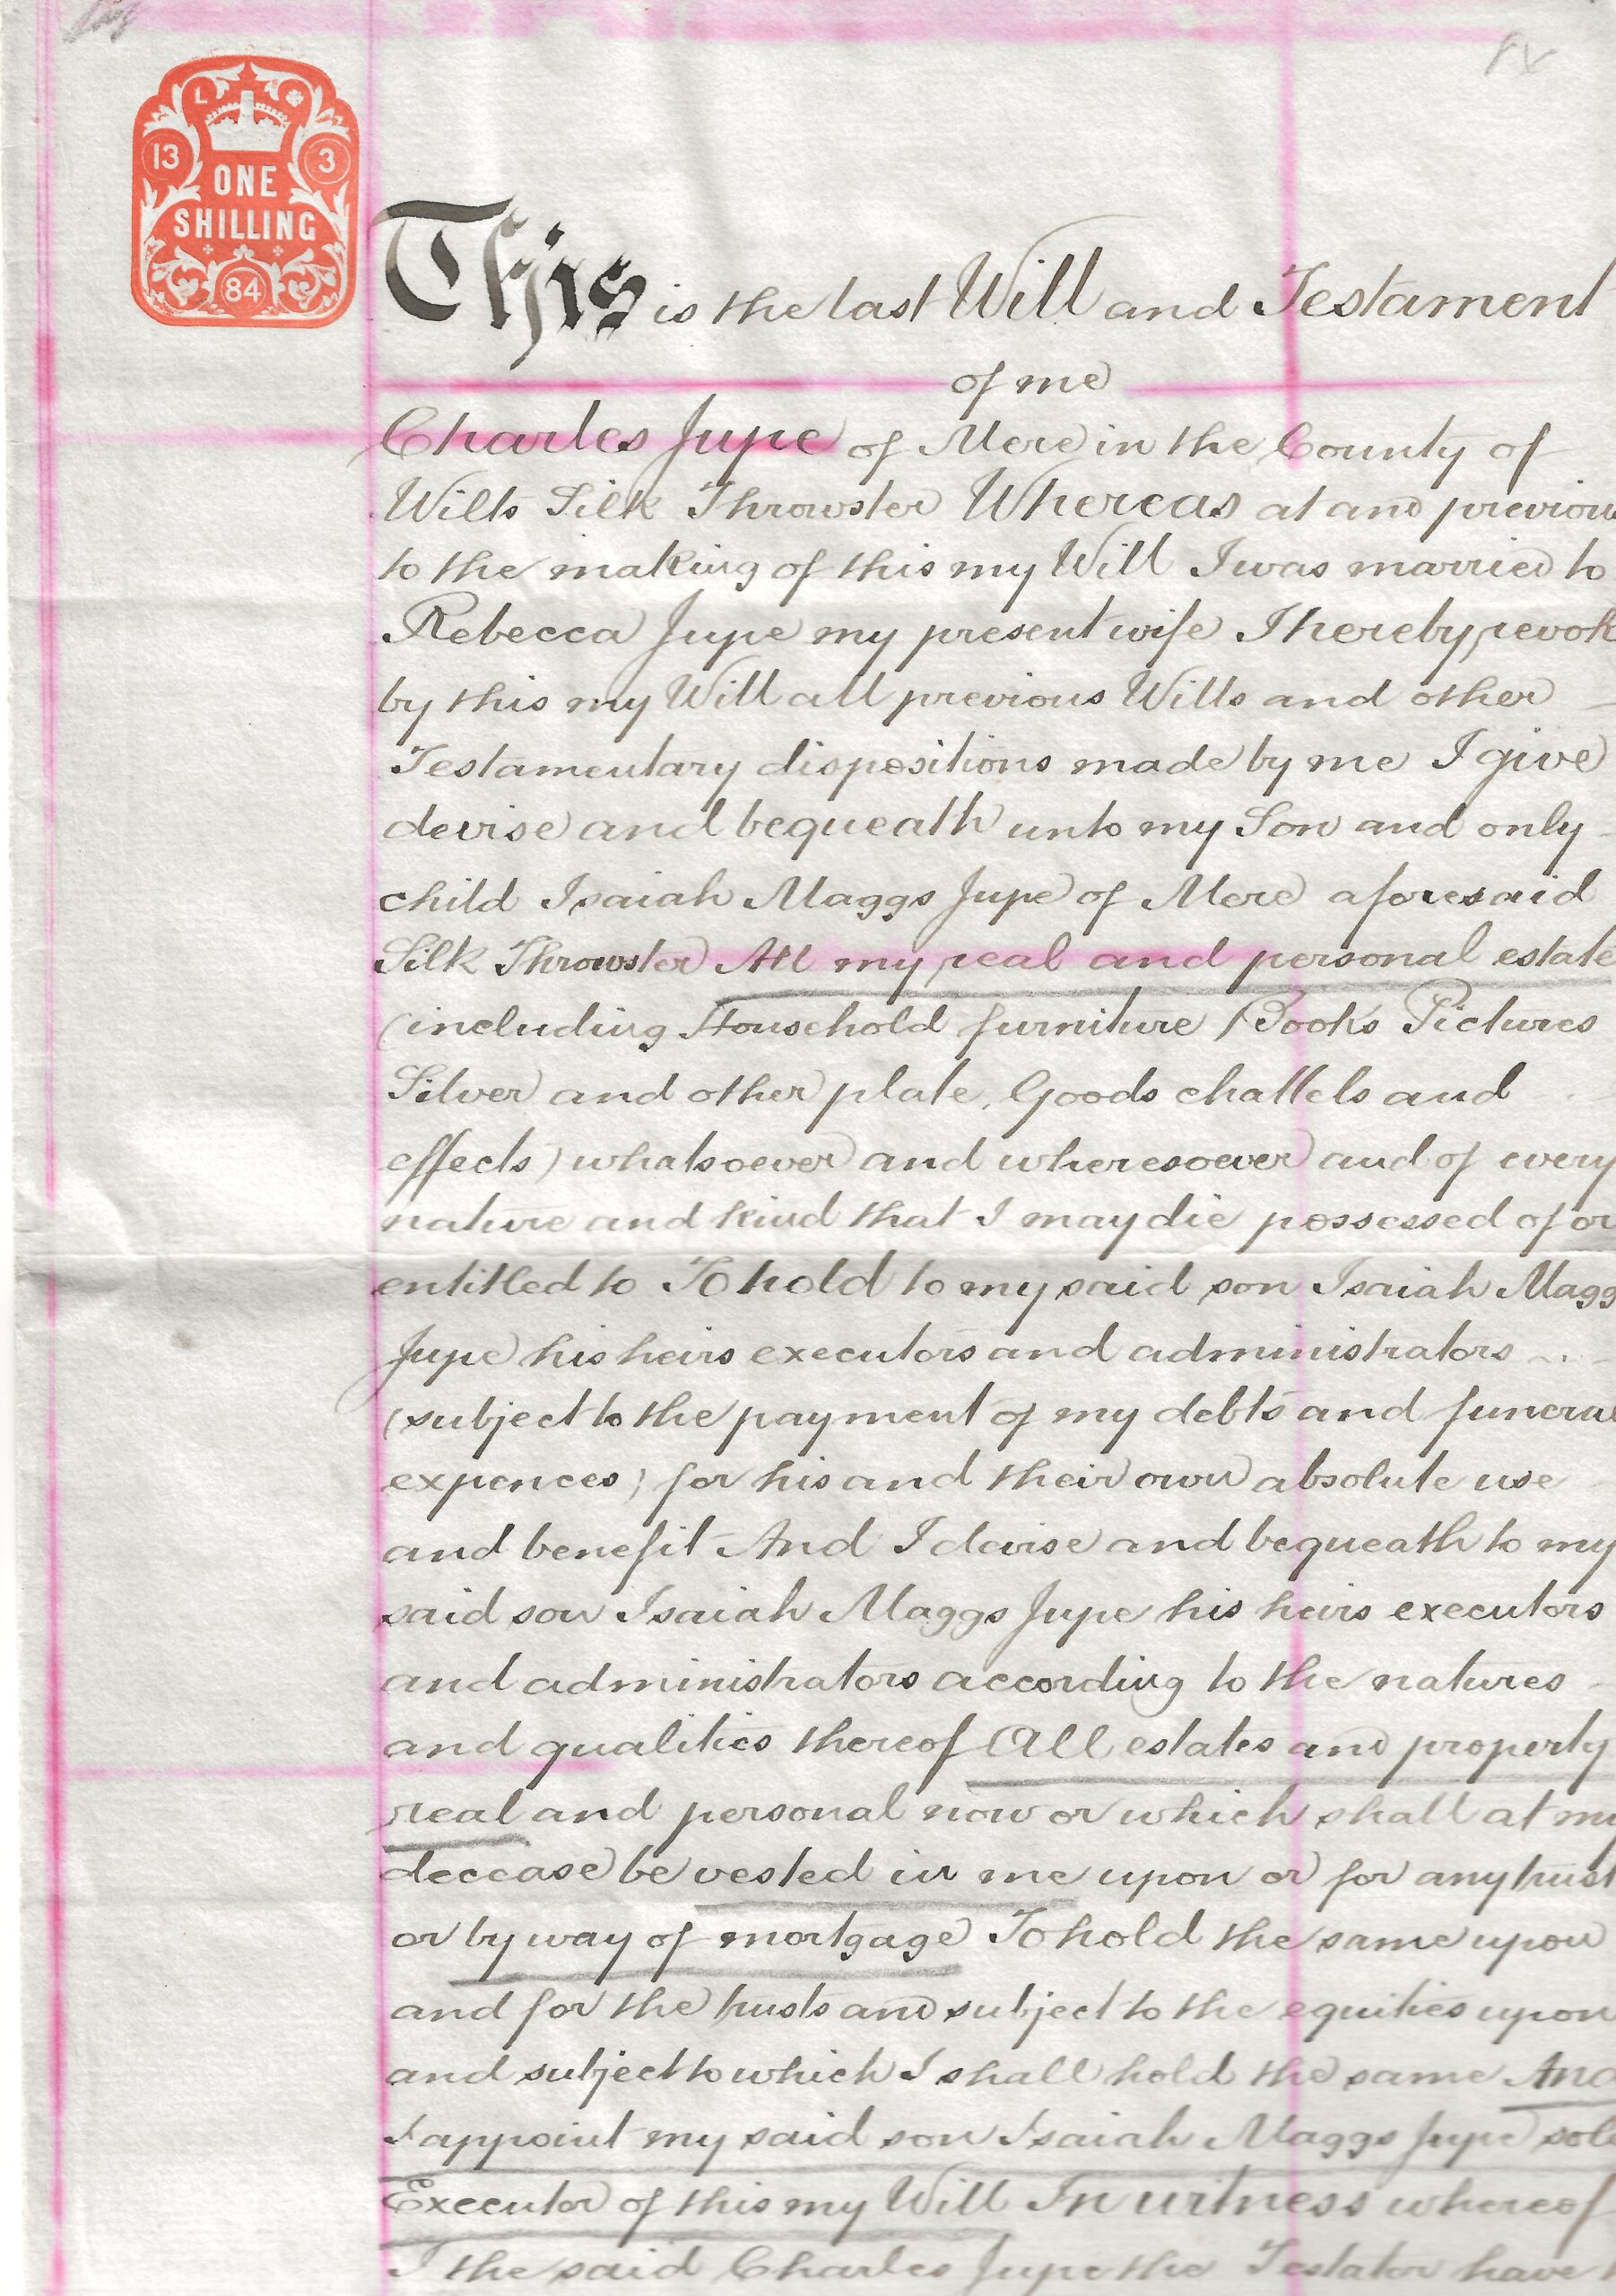 L
13 3
ONE
SHILLING
84
This is the last Will and Testament
of me
Charles Jupe of Mere in the County of
Wilts Silk Throwster Whereas at and previou
to the making of this my Will I was married to
Rebecca Jupe my present wife I hereby revok
by this my Will all previous Wills and other
Testamentary dispositions made by me I give
devise and bequeath unto my Son and only
child Isaiah Maggs Jupe of Mere aforesaid
Silk Throwster All my real and personal estate
(including Household furniture Books Pictures
Silver and other plate, Goods chattels and
effects) whatsoever and wheresoever and of every
nature and kind that I may die possessed of or
entitled to To hold to my said son Isaiah Magg
Jupe his heirs executors and administrators
(subject to the payment of my debts and funeral
expences) for his and their own absolute use
and benefit And I devise and bequeath to my
said son Isaiah Maggs Jupe his heirs executors
and administrators according to the natures
and qualities thereof All estates and property
real and personal now or which shall at my
decease be vested in me upon or for any trust
or by way of mortgage To hold the same upon
and for the trusts and subject to the equities upon
and subject to which I shall hold the same And
I appoint my said son Isaiah Maggs Jupe sole
Executor of this my Will In witness whereof
I the said Charles Jupe the Testator have